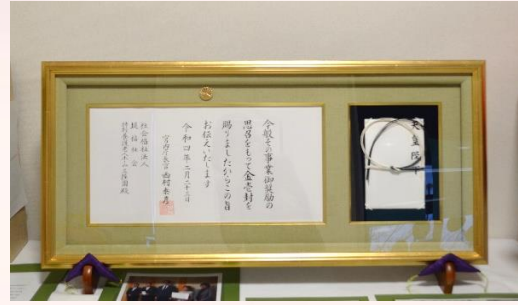 今般その事業御奨励の
思召をもって金壱封を
賜りましたからこの旨
お伝えいたします
令和四年二月二十三日
宮内庁長官 西村泰彦
社会福祉法人
天皇陛下